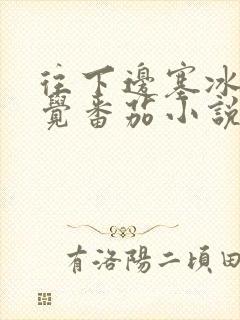 往下邊塞冰
覺番茄小說
有洛陽二頃田